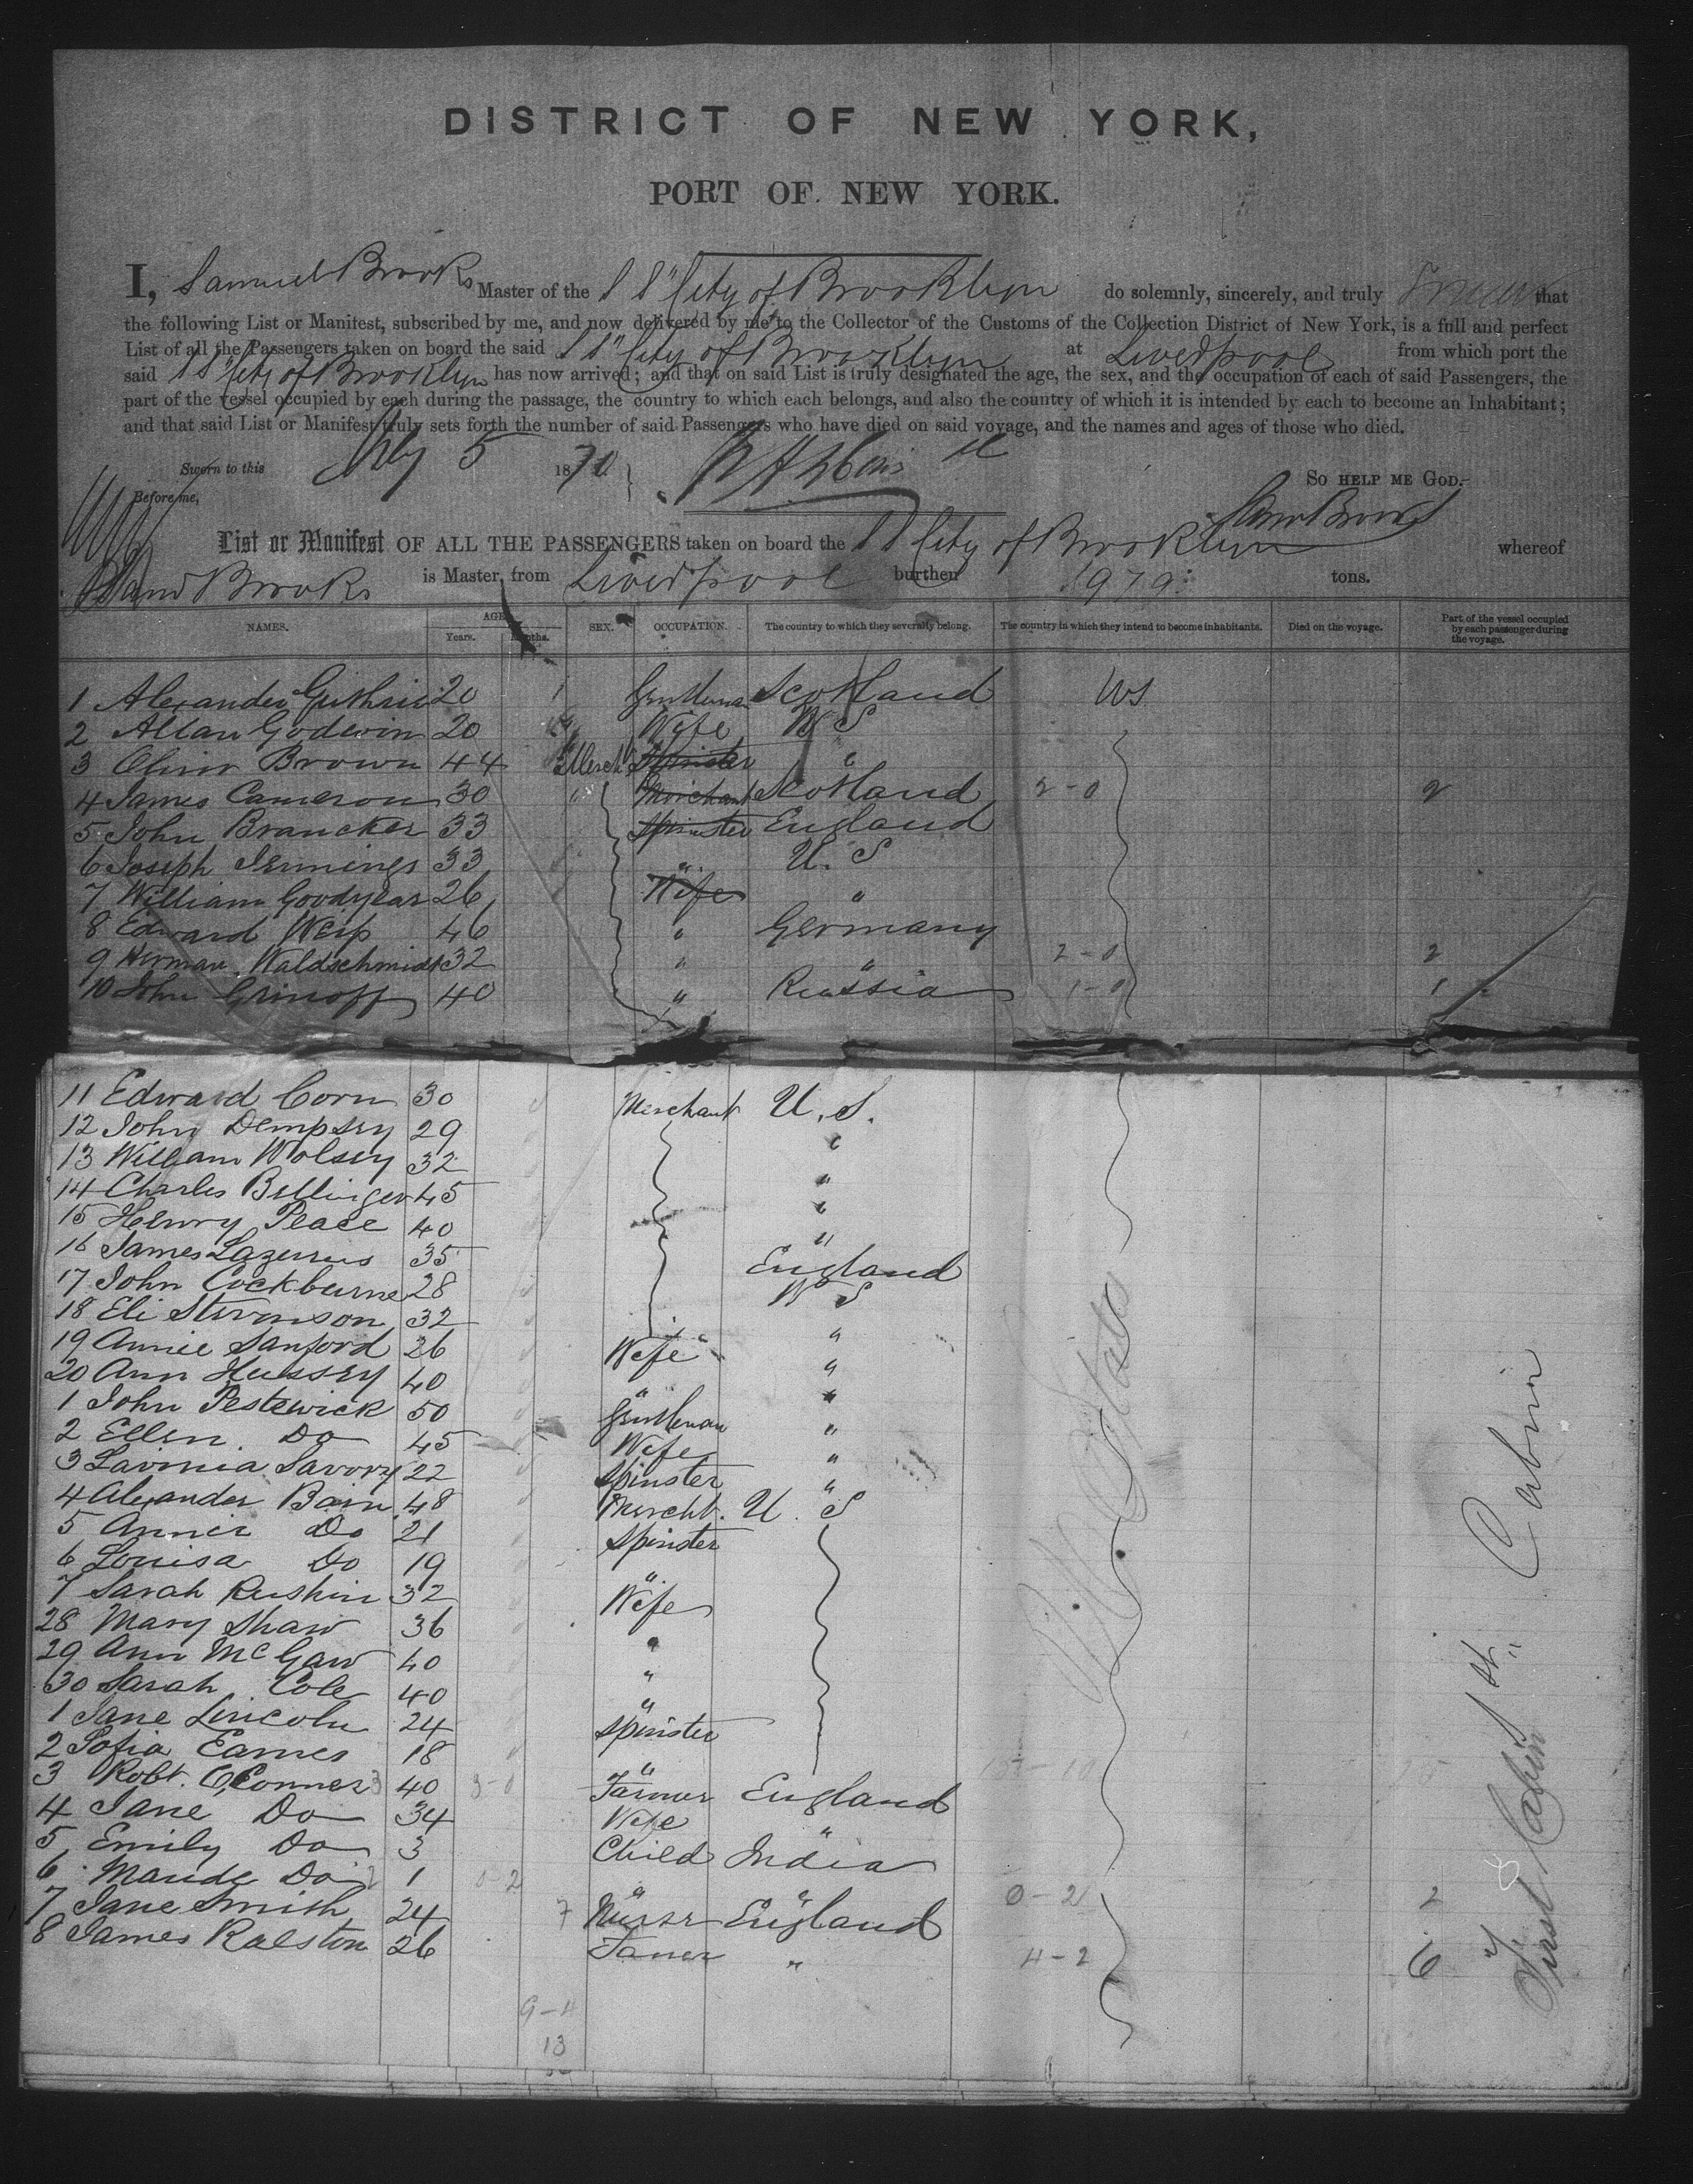 DISTRICT OF NEW YORK,
PORT OF NEW YORK.
I, Samuel Brooks Master of the S S "City of Brooklyn do solemnly, sincerely, and truly swear that
the following List or Manifest, subscribed by me, and now delivered by me to the Collector of the Customs of the Collection District of New York, is a full and perfect
List of all the Passengers taken on board the said S S "City of Brooklyn at Liverpool from which port the
said S S "City of Brooklyn has now arrived; and that on said List is truly designated the age, the sex, and the occupation of each of said Passengers, the
part of the vessel occupied by each during the passage, the country to which each belongs, and also the country of which it is intended by each to become an Inhabitant;
and that said List or Manifest truly sets forth the number of said Passengers who have died on said voyage, and the names and ages of those who died.
Sworn to this 5 1870
So HELP ME GOD.
Before me,
Sam Brooks
List or Manifest OF ALL THE PASSENGERS taken on board the S S City of Brooklyn whereof
Sam Brooks is Master, from Liverpool burthen 1979 tons.
NAMES. AGE. Years. Months. SEX. OCCUPATION. The country to which they severally belong. The country in which they intend to become inhabitants. Died on the voyage. Part of the vessel occupied by each passenger during the voyage.
1 Alexander Guthrie 20 Gentleman Scotland US
2 Allan Godwin 20 Wife U S
3 Oliver Brown 44 Merch't Spinster "
4 James Cameron 30 " Merchant Scotland 2-0 2
5 John Brancker 33 Spinster England
6 Joseph Jennings 33 " U. S
7 William Goodyear 26 Wife "
8 Edward Weip 46 " Germany
9 Herman Waldschmidt 32 " " 2-0 2
10 John Grinoff 40 " Russia 1-0 1
11 Edward Corn 30 Merchant U. S.
12 John Dempsey 29 "
13 William Wolsey 32 "
14 Charles Bellinger 45 "
15 Henry Peace 40 "
16 James Lazerus 35 England
17 John Cockburne 28 U S
18 Eli Stevenson 32 "
19 Annie Sanford 26 Wife "
20 Ann Hussey 40 " "
1 John Pestewick 50 Gentleman "
2 Ellen Do 45 Wife "
3 Lavinia Savory 22 Spinster "
4 Alexander Bain 48 Mercht. U. S
5 Annie Do 21 Spinster
6 Louisa Do 19 "
7 Sarah Rushin 32 Wife
28 Mary Shaw 36 "
29 Ann McGaw 40 "
30 Sarah Cole 40 "
1 Jane Lincoln 24 Spinster
2 Sofia Eames 18 "
3 Robt. O'Conner 3 40 3-0 Farmer England
4 Jane Do 34 Wife "
5 Emily Do 3 Child India
6 Maude Do 2 1 0-2 " " 0-2 2
7 Jane Smith 24 7 Nurse England
8 James Ralston 26 Farmer " 4-2 6
9-4
13
1 st. Cabin
First Cabin